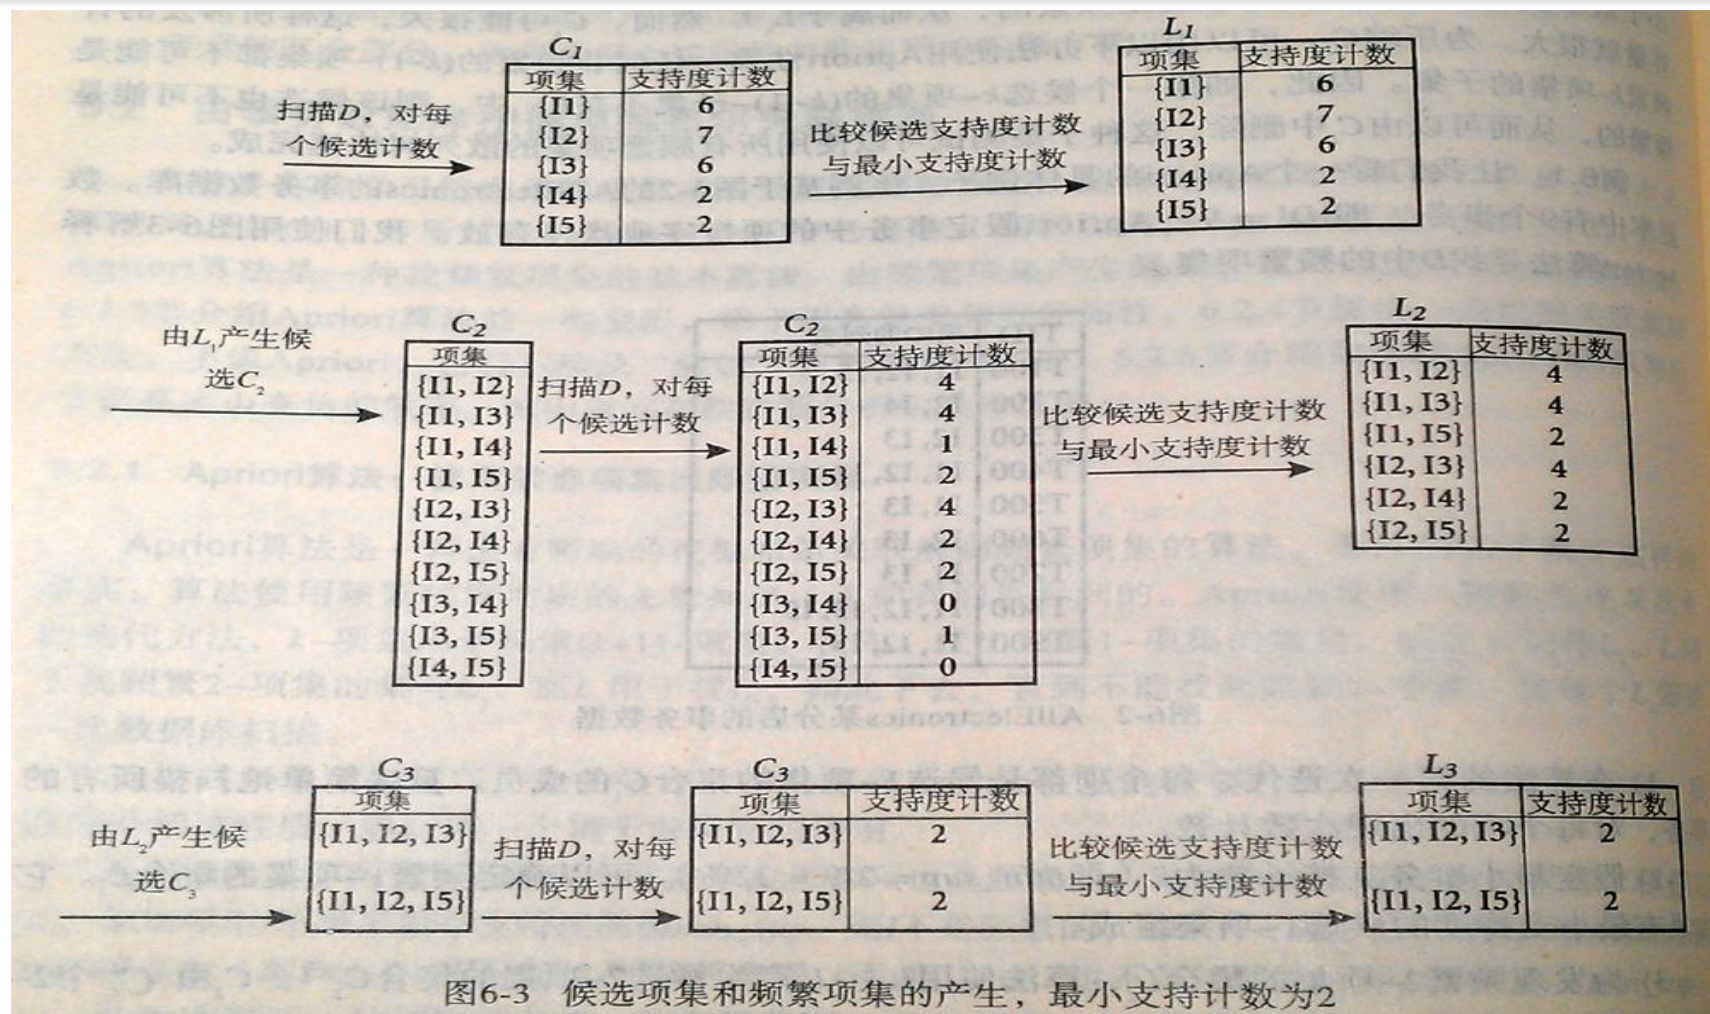 C₁
项集 支持度计数
{I1} 6
{I2} 7
{I3} 6
{I4} 2
{I5} 2
扫描D，对每
个候选计数
L₁
项集 支持度计数
{I1} 6
{I2} 7
{I3} 6
{I4} 2
{I5} 2
比较候选支持度计数
与最小支持度计数
由L₁产生候
选C₂
C₂
项集
{I1, I2}
{I1, I3}
{I1, I4}
{I1, I5}
{I2, I3}
{I2, I4}
{I2, I5}
{I3, I4}
{I3, I5}
{I4, I5}
扫描D，对每
个候选计数
C₂
项集 支持度计数
{I1, I2} 4
{I1, I3} 4
{I1, I4} 1
{I1, I5} 2
{I2, I3} 4
{I2, I4} 2
{I2, I5} 2
{I3, I4} 0
{I3, I5} 1
{I4, I5} 0
比较候选支持度计数
与最小支持度计数
L₂
项集 支持度计数
{I1, I2} 4
{I1, I3} 4
{I1, I5} 2
{I2, I3} 4
{I2, I4} 2
{I2, I5} 2
由L₂产生候
选C₃
C₃
项集
{I1, I2, I3}
{I1, I2, I5}
扫描D，对每
个候选计数
C₃
项集 支持度计数
{I1, I2, I3} 2
{I1, I2, I5} 2
比较候选支持度计数
与最小支持度计数
L₃
项集 支持度计数
{I1, I2, I3} 2
{I1, I2, I5} 2
图6-3 候选项集和频繁项集的产生，最小支持计数为2